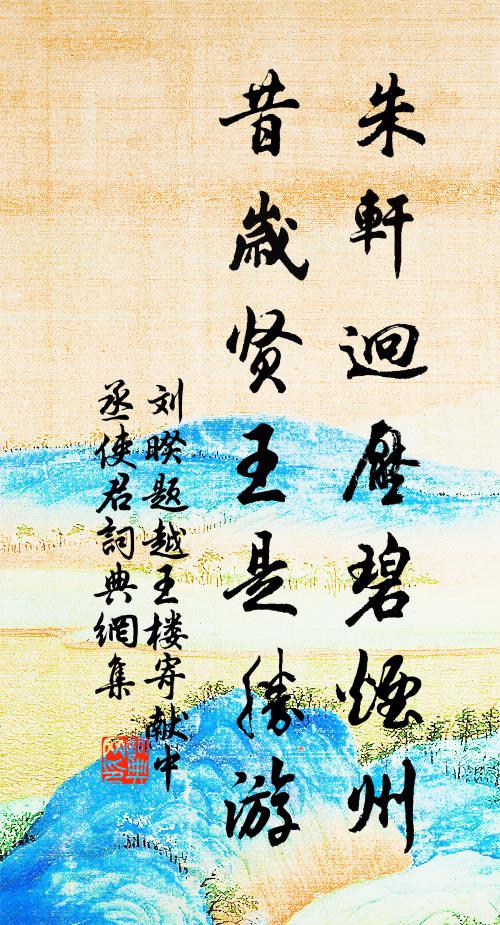 朱軒迥壓碧煙州
昔歲贤王是勝游
刘暌题越王楼寄献中
丞使君詞典網集